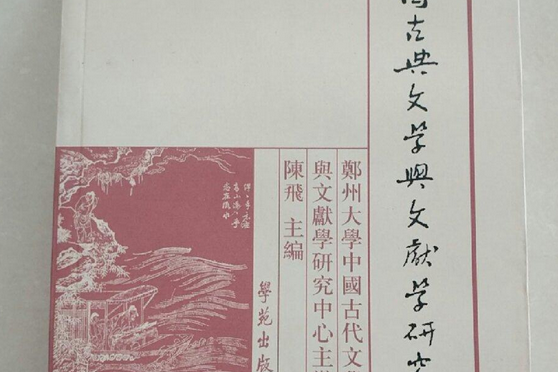 古典文學與文獻學研究
鄭州大學中國古代文
與文獻學研究中心主
陳飛 主編
學苑出版